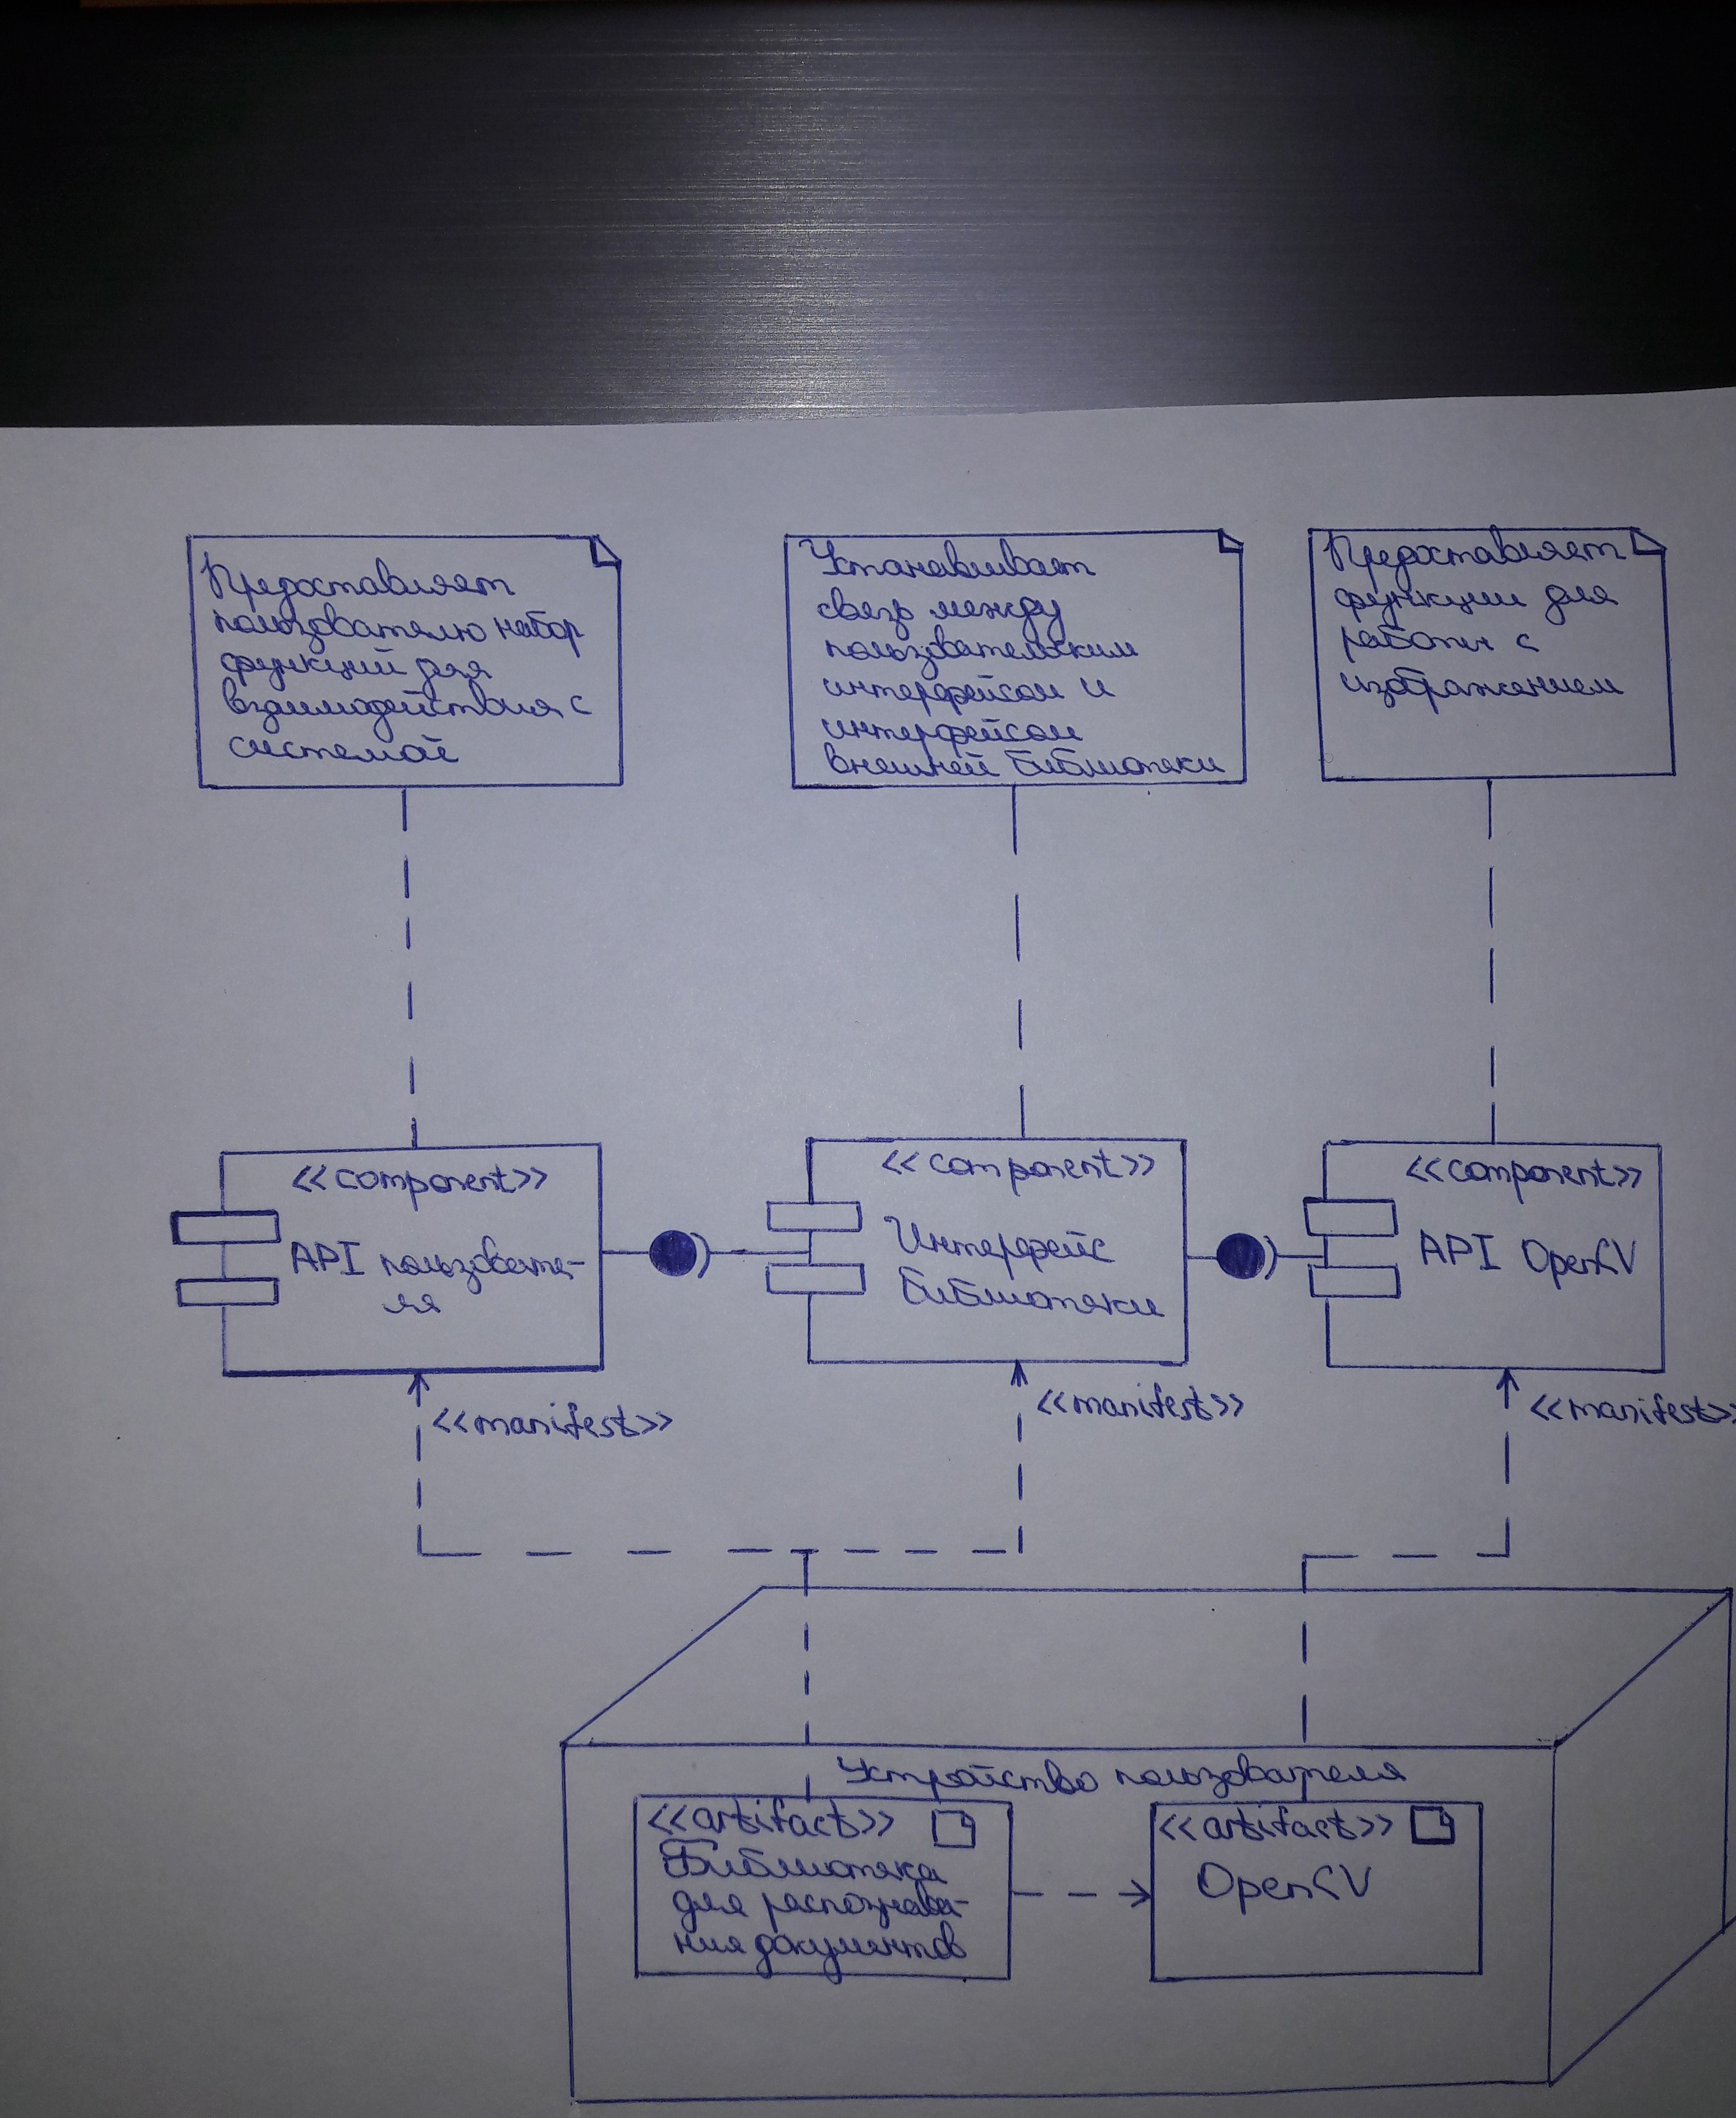 Предоставляет
пользователю набор
функций для
взаимодействия с
системой
Устанавливает
связь между
пользовательским
интерфейсом и
интерфейсом
внешней библиотеки
Предоставляет
функции для
работы с
изображением
<<component>>
API пользовате-
ля
<<component>>
Интерфейс
библиотеки
<<component>>
API OpenCV
<<manifest>>
<<manifest>>
<<manifest>>
Устройство пользователя
<<artifact>>
Библиотека
для распознава-
ния документов
<<artifact>>
OpenCV